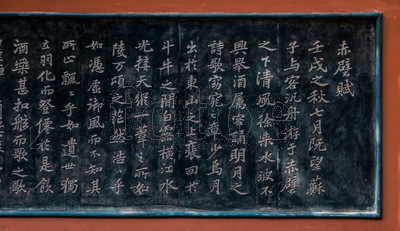 赤壁賦
壬戌之秋七月既望蘇
子与客泛舟游于赤壁
之下清風徐来水波不
興舉酒属客誦明月之
詩歌窈窕之章少焉月
出於東山之上裴回於
斗牛之間白露横江水
光接天縱一葦之所如
陵万頃之茫然浩〻乎
如馮虚御風而不知其
所止飄〻乎如遺世獨
立羽化而登僊於是飲
酒樂甚扣舷而歌之歌